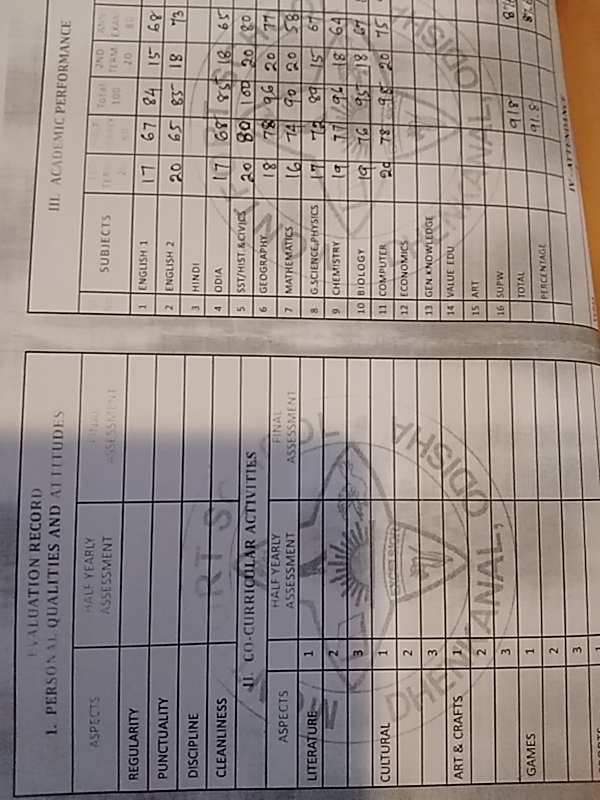 EVALUATION RECORD
I. PERSONAL QUALITIES AND ATTITUDES
ASPECTS HALF YEARLY ASSESSMENT FINAL ASSESSMENT
REGULARITY
PUNCTUALITY
DISCIPLINE
CLEANLINESS
II. CO-CURRICULAR ACTIVITIES
ASPECTS HALF YEARLY ASSESSMENT FINAL ASSESSMENT
LITERATURE 1
2
3
CULTURAL 1
2
3
ART & CRAFTS 1
2
3
GAMES 1
2
3
DHENKANAL, ODISHA
III. ACADEMIC PERFORMANCE
SUBJECTS TERM Total 100 2ND TERM 20 ANN EXAM 80
1 ENGLISH 1 17 67 84 15 68
2 ENGLISH 2 20 65 85 18 73
3 HINDI
4 ODIA 17 68 85 18 65
5 SST/HIST.&CIVICS 20 80 100 20 80
6 GEOGRAPHY 18 78 96 20 77
7 MATHEMATICS 16 74 90 20 58
8 G.SCIENCE/PHYSICS 17 72 89 15 67
9 CHEMISTRY 19 77 96 18 64
10 BIOLOGY 19 76 95 18 67
11 COMPUTER 20 78 98 20 75
12 ECONOMICS
13 GEN.KNOWLEDGE
14 VALUE EDU
15 ART
16 SUPW
TOTAL 918
PERCENTAGE 91.8
IV. ATTENDANCE